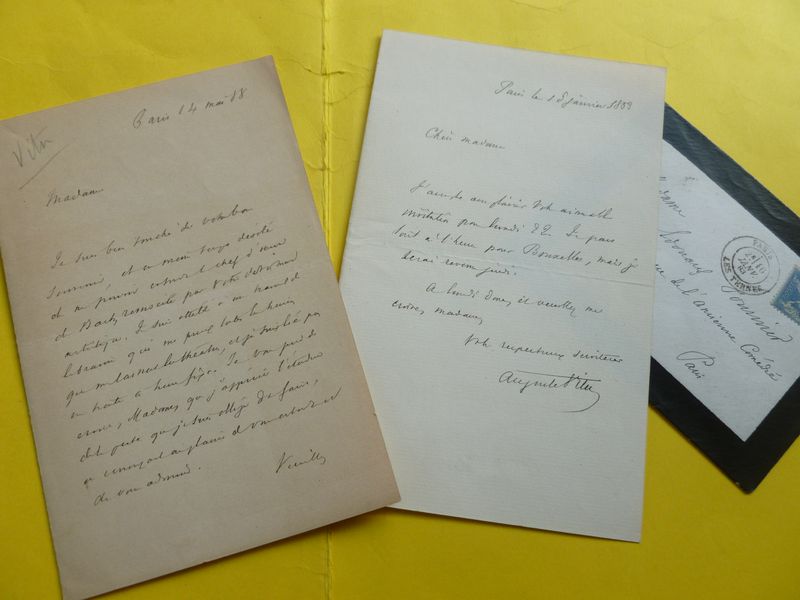 Vitu
Paris 14 mai 18
Madame
Je suis bien touché de votre bon
souvenir, et en même temps désolé
de ne pouvoir entendre le chef d'œuvre
de par votre
artistique. Je suis attelé à un travail
qui me prend toutes les heures
que me laisse le théâtre, et je suis lié par
un traité à heure fixe. Je vous prie de
croire, Madame, que j'apprécie l'étendue
de la perte que je suis obligé de faire,
en renonçant au plaisir de vous entendre et
de vous
Paris le 15 janvier 1883
Chère madame
J'accepte avec plaisir votre aimable
invitation pour lundi 22. Je pars
tout à l'heure pour Bruxelles, mais je
serai revenu jeudi.
A lundi donc et veuillez me
croire, madame,
Votre respectueux serviteur
Auguste Vitu
Madame
de l'ancienne Comédie
Paris
PARIS
LES TERNES